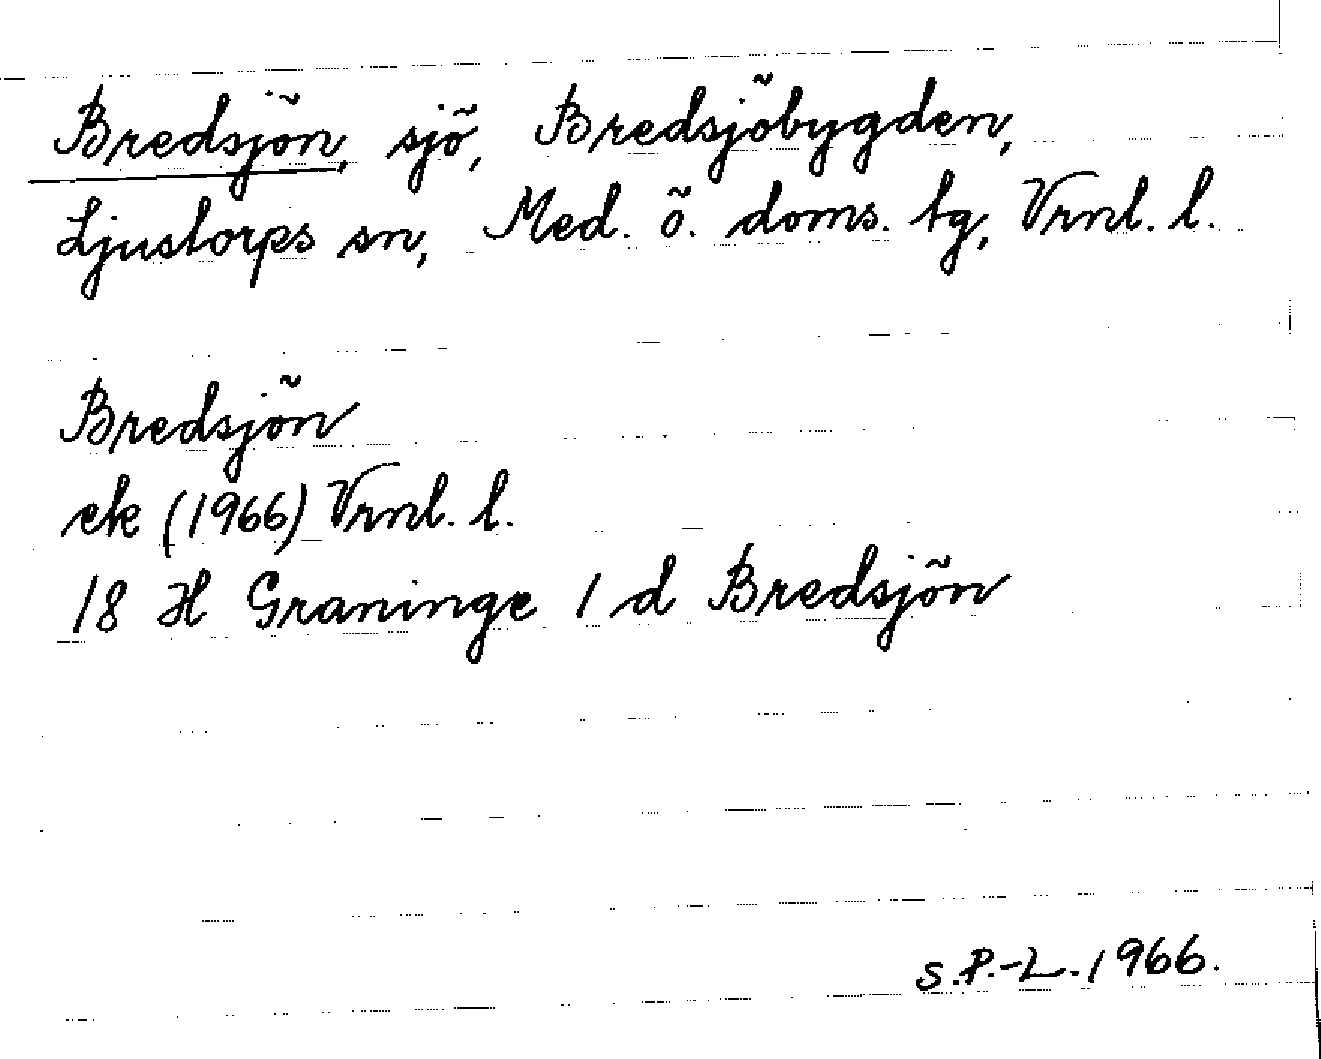 Bredsjön, sjö, Bredsjöbygden,
Ljustorps sn, Med. ö. doms. tg, Vrnl. l.
Bredsjön
ek (1966) Vrnl. l.
18 H Graninge 1 d Bredsjön
S.P.-L. 1966.